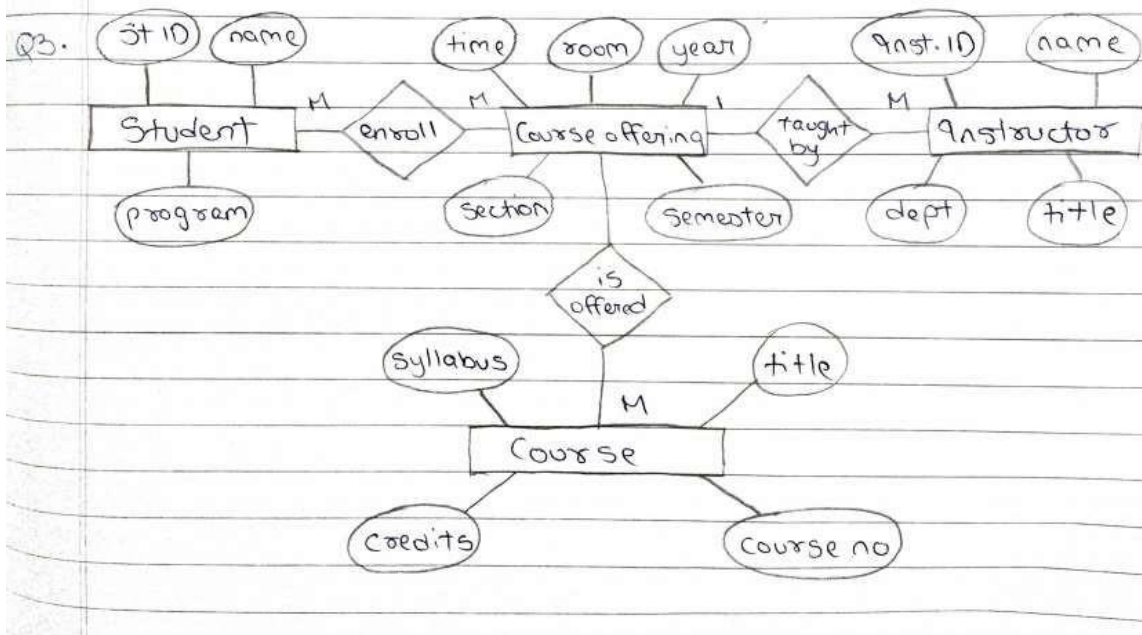 Q3.
St ID
name
time
room
year
Inst. ID
name
M
M
1
M
Student
enroll
Course offering
taught
by
Instructor
program
section
semester
dept
title
is
offered
syllabus
title
M
Course
credits
course no